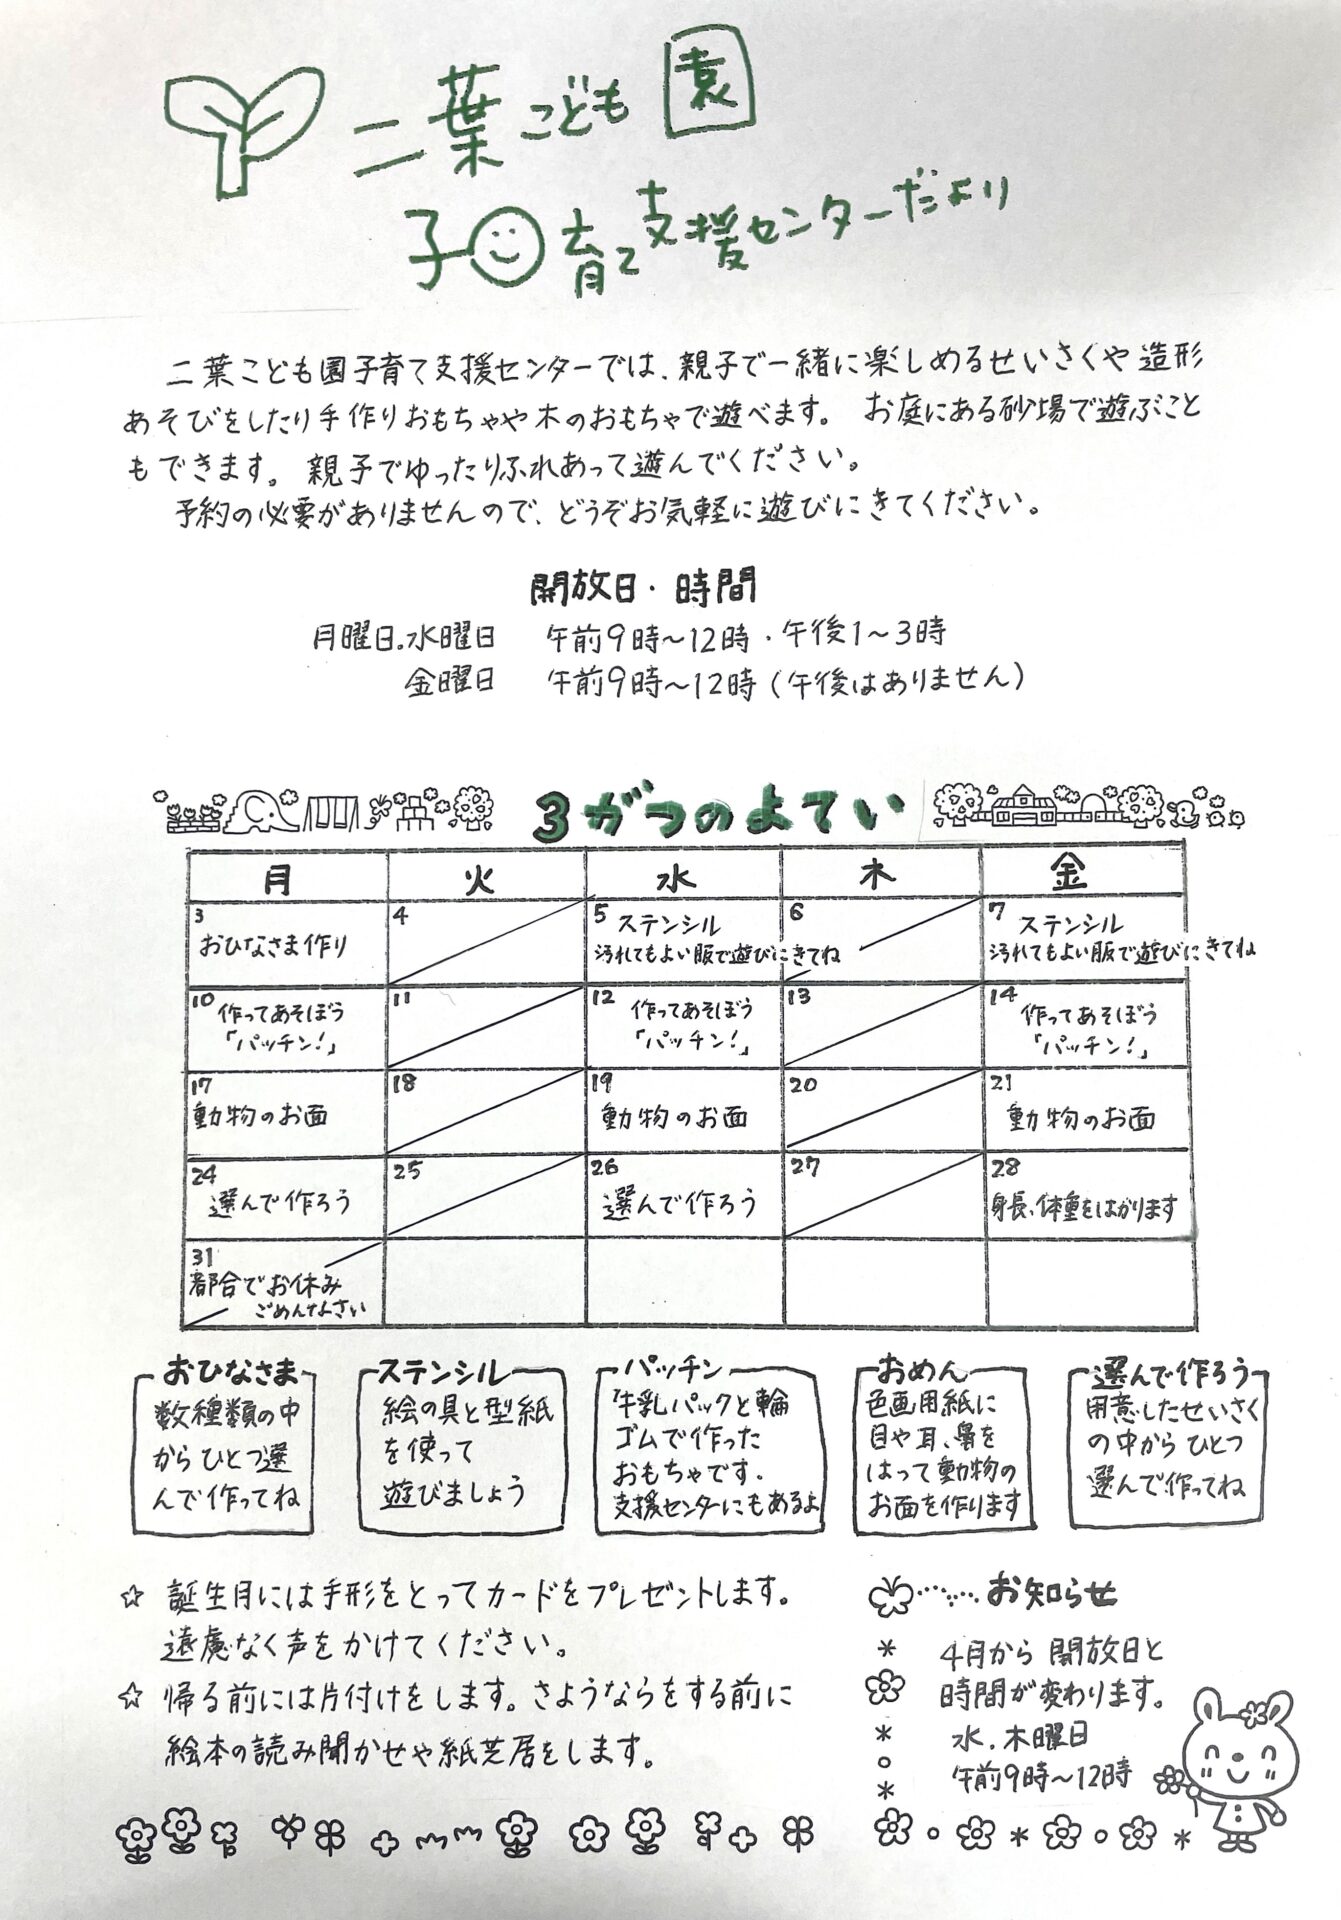 二葉こども園
子育て支援センターだより
二葉こども園子育て支援センターでは、親子で一緒に楽しめるせいさくや造形
あそびをしたり手作りおもちゃや木のおもちゃで遊べます。 お庭にある砂場で遊ぶこと
もできます。 親子でゆったりふれあって遊んでください。
予約の必要がありませんので、どうぞお気軽に遊びにきてください。
開放日・時間
月曜日.水曜日 午前9時~12時・午後1~3時
金曜日 午前9時~12時(午後はありません)
3がつのよてい
月 火 水 木 金
3 おひなさま作り
4
5 ステンシル
汚れてもよい服で遊びにきてね
6
7 ステンシル
汚れてもよい服で遊びにきてね
10 作ってあそぼう
「パッチン!」
11
12 作ってあそぼう
「パッチン!」
13
14 作ってあそぼう
「パッチン!」
17 動物のお面
18
19 動物のお面
20
21 動物のお面
24 選んで作ろう
25
26 選んで作ろう
27
28 身長、体重をはかります
31
都合でお休み
ごめんなさい
おひなさま
数種類の中
からひとつ選
んで作ってね
ステンシル
絵の具と型紙
を使って
遊びましょう
パッチン
牛乳パックと輪
ゴムで作った
おもちゃです.
支援センターにもあるよ
おめん
色画用紙に
目や耳、鼻を
はって動物の
お面を作ります
選んで作ろう
用意したせいさく
の中からひとつ
選んで作ってね
☆ 誕生月には手形をとってカードをプレゼントします。
遠慮なく声をかけてください。
☆ 帰る前には片付けをします。さようならをする前に
絵本の読み聞かせや紙芝居をします。
お知らせ
4月から 開放日と
時間が変わります。
水.木曜日
午前9時~12時